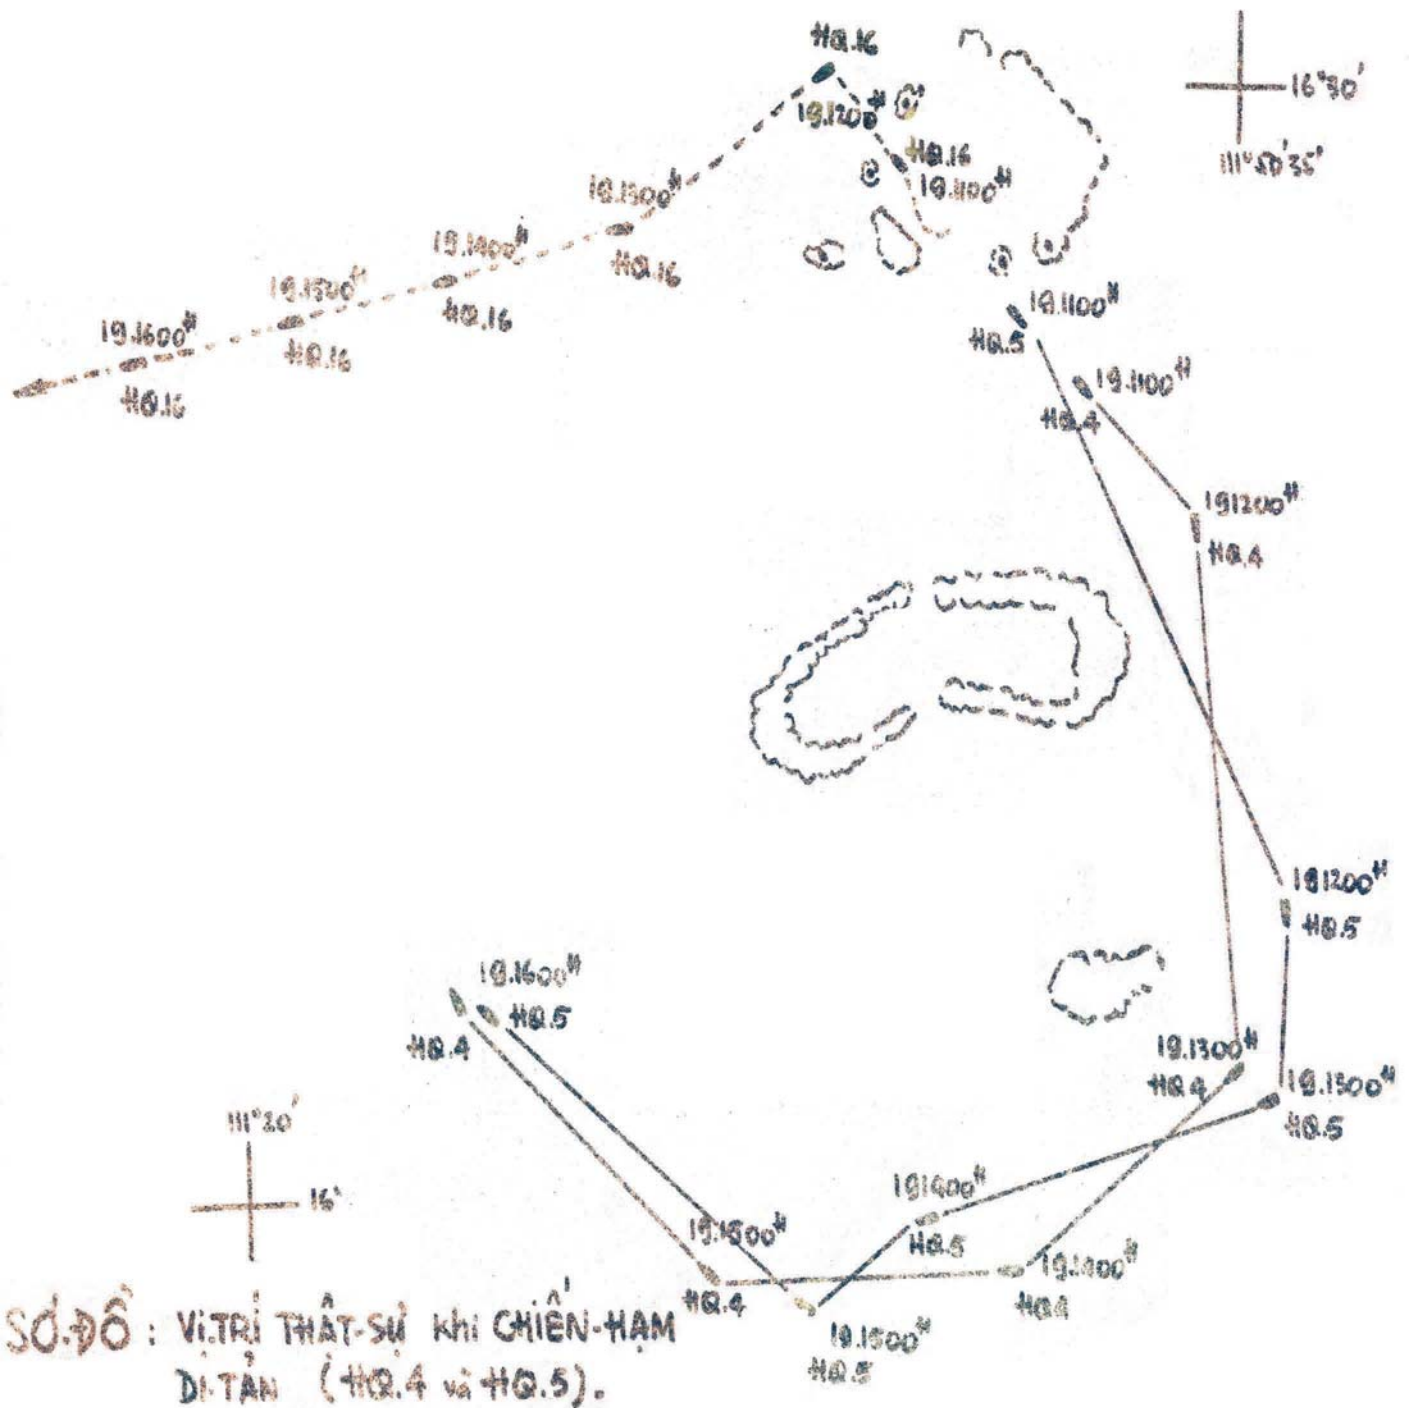 HQ.16
16°30'
19.1200ᴴ
HQ.16
111°50'35"
19.1100ᴴ
19.1300ᴴ
HQ.16
19.1400ᴴ
HQ.16
19.1500ᴴ
HQ.16
19.1600ᴴ
HQ.16
19.1100ᴴ
HQ.5
19.1100ᴴ
HQ.4
191200ᴴ
HQ.4
191200ᴴ
HQ.5
19.1600ᴴ
HQ.5
HQ.4
19.1300ᴴ
HQ.4
19.1300ᴴ
HQ.5
111°20'
16°
191400ᴴ
HQ.5
19.1500ᴴ
HQ.4
19.1400ᴴ
HQ.4
19.1500ᴴ
HQ.5
SƠ-ĐỒ : VỊ.TRÍ THẬT-SỰ KHI CHIẾN-HẠM
DI-TẢN (HQ.4 và HQ.5).